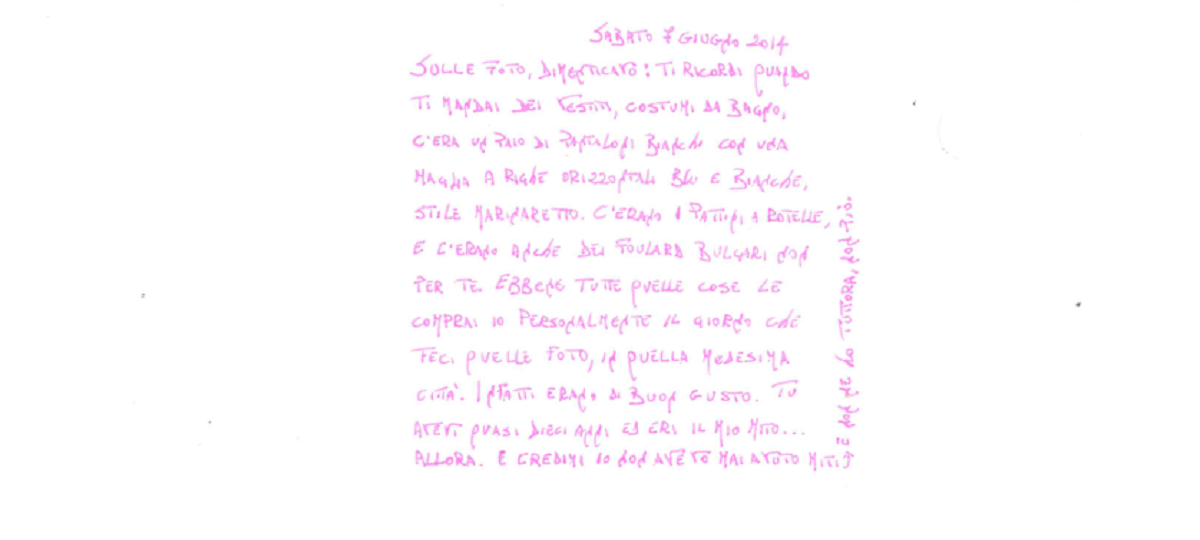 SABATO 7 GIUGNO 2014
SULLE FOTO, DIMENTICAVO: TI RICORDI QUANDO
TI MANDAI DEI VESTITI, COSTUMI DA BAGNO,
C'ERA UN PAIO DI PANTALONI BIANCHI CON UNA
MAGLIA A RIGHE ORIZZONTALI BLU E BIANCHE,
STILE MARINARETTO. C'ERANO I PATTINI A ROTELLE,
E C'ERANO ANCHE DEI FOULARD BULGARI NON
PER TE. EBBENE TUTTE QUELLE COSE LE
COMPRAI IO PERSONALMENTE IL GIORNO CHE
FECI QUELLE FOTO, IN QUELLA MEDESIMA
CITTA'. INFATTI ERANO DI BUON GUSTO. TU
AVEVI QUASI DIECI ANNI ED ERI IL MIO MITO...
ALLORA. E CREDIMI IO NON AVEVO MAI AVUTO MITI
E NON NE HO TUTTORA, NON PIÙ.